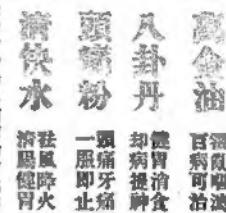 萬金油
百病可治
八卦丹
健胃消食
却病提神
頭痛粉
頭痛牙痛
一服即止
清快水
祛風降火
清腸健胃